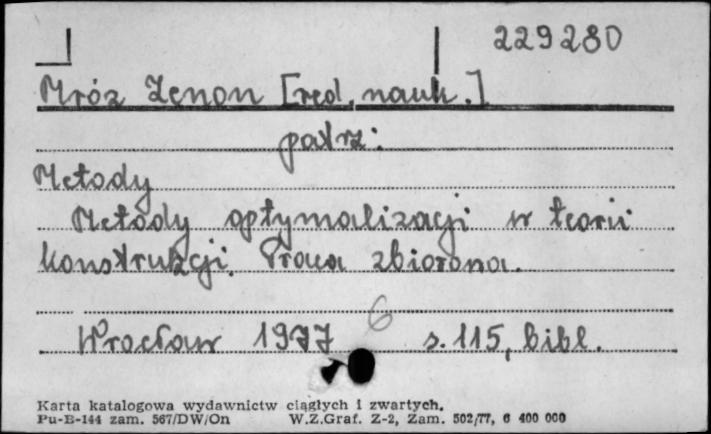 229280
Mróz Zenon [red. nauk.]
patrz:
Metody
Metody optymalizacji w teorii
konstrukcji. Praca zbiorowa.
6
Wrocław 1977 s. 115, bibl.
Karta katalogowa wydawnictw ciągłych i zwartych.
Pu-B-144 zam. 567/DW/On W.Z.Graf. Z-2, Zam. 502/77, 6 400 000